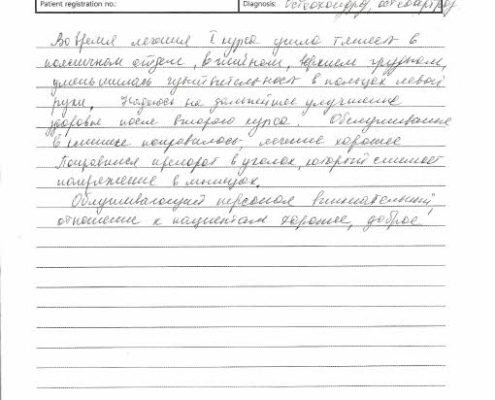 Patient registration no.: Diagnosis: Остеохондроз, остеоартроз
Во время лечения I курса ушла тяжесть в
поясничном отделе, в шейном, верхнем грудном,
уменьшилась чувствительность в пальцах левой
руки. Надеюсь на дальнейшее улучшение
здоровья после второго курса. Обслуживание
в клинике понравилось, лечение хорошее
Понравился препарат в уколах, который снимает
напряжение в мышцах.
Обслуживающий персонал внимательный,
отношение к пациентам хорошее, доброе